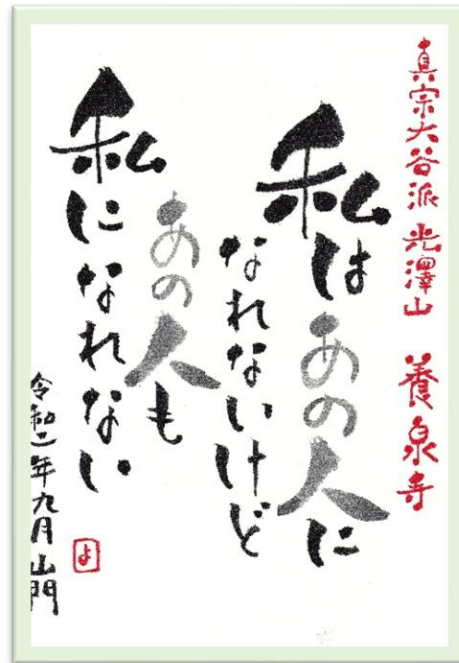 真宗大谷派 光澤山 養泉寺
私はあの人に
なれないけど
あの人も
私になれない
令和二年九月 山門
よ